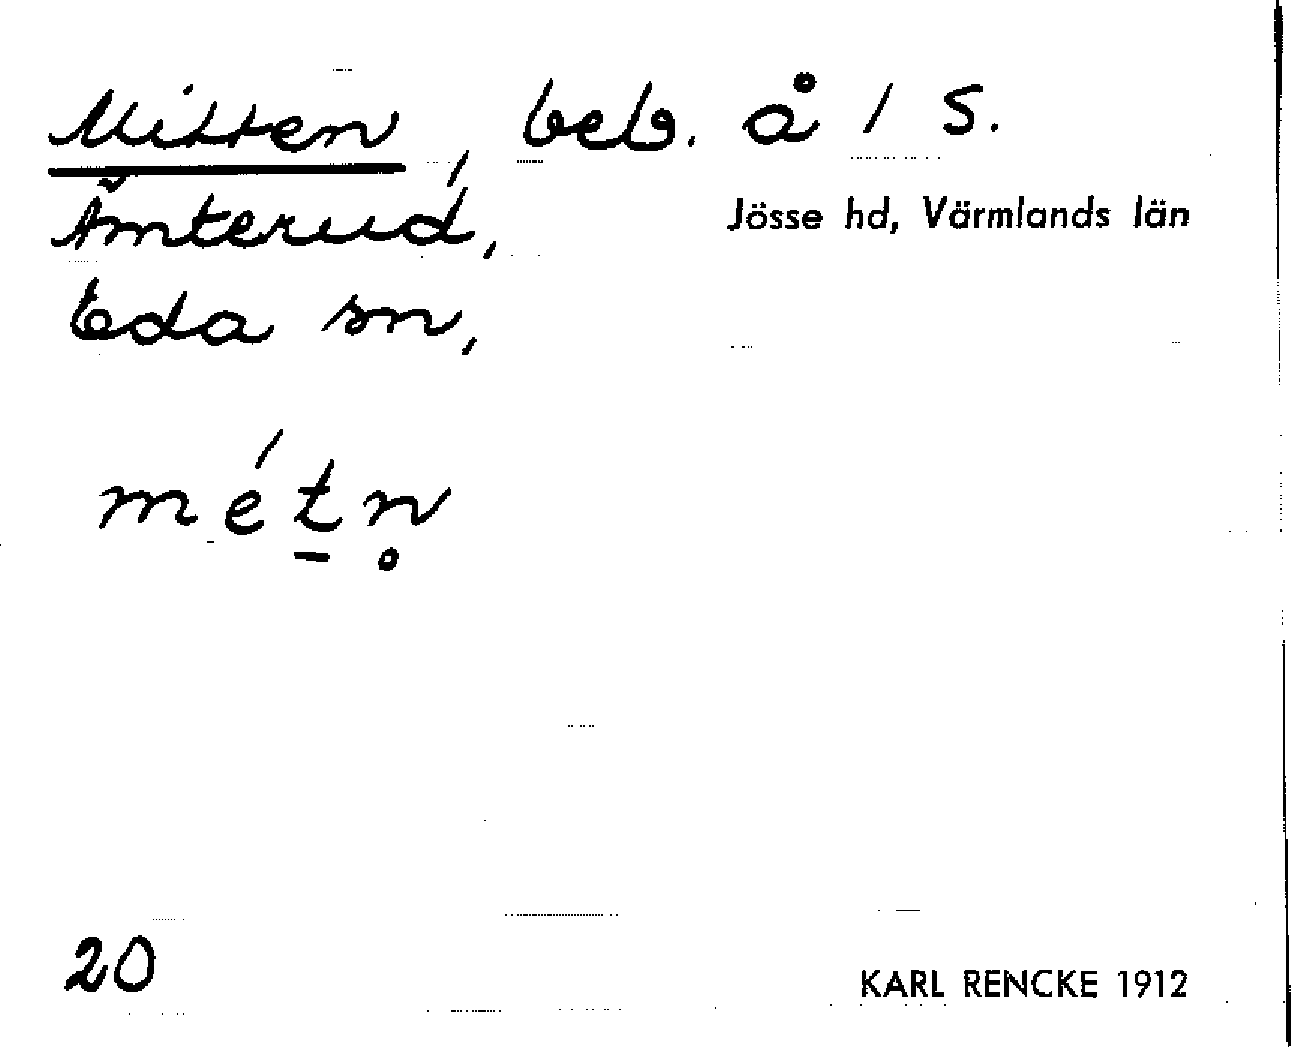 Mitten, beb. å 1/1 S.
Ämterud,
Jösse hd, Värmlands län
Eda sn,
m é t̠ n̥
20
KARL RENCKE 1912